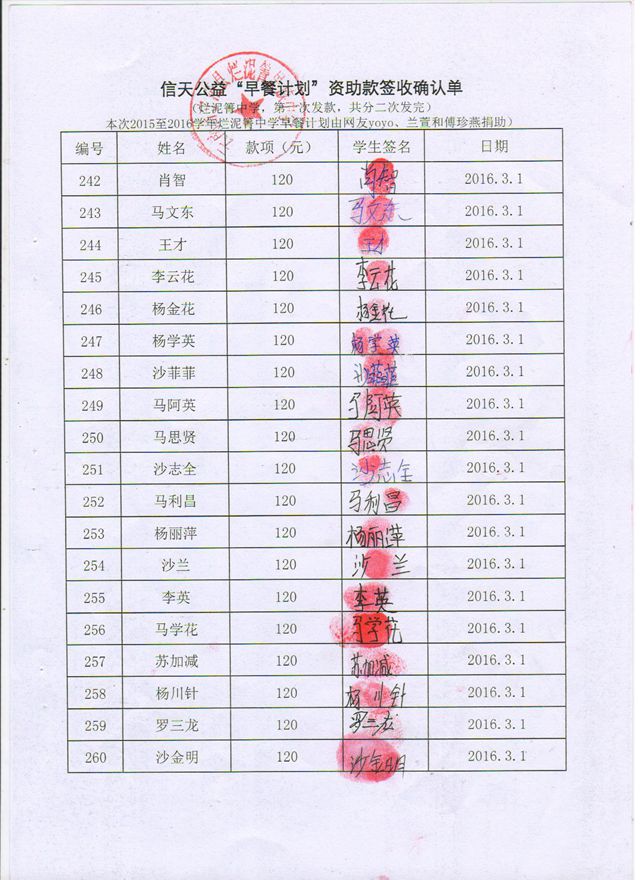 信天公益“早餐计划”资助款签收确认单
（烂泥箐中学，第一次发款，共分二次发完）
本次2015至2016学年烂泥箐中学早餐计划由网友yoyo、兰萱和傅珍燕捐助）
编号 姓名 款项（元） 学生签名 日期
242 肖智 120 肖智 2016.3.1
243 马文东 120 马文东 2016.3.1
244 王才 120 王才 2016.3.1
245 李云花 120 李云花 2016.3.1
246 杨金花 120 杨金花 2016.3.1
247 杨学英 120 杨学英 2016.3.1
248 沙菲菲 120 沙菲菲 2016.3.1
249 马阿英 120 马阿英 2016.3.1
250 马思贤 120 马思贤 2016.3.1
251 沙志全 120 沙志全 2016.3.1
252 马利昌 120 马利昌 2016.3.1
253 杨丽萍 120 杨丽萍 2016.3.1
254 沙兰 120 沙兰 2016.3.1
255 李英 120 李英 2016.3.1
256 马学花 120 马学花 2016.3.1
257 苏加减 120 苏加减 2016.3.1
258 杨川针 120 杨川针 2016.3.1
259 罗三龙 120 罗三龙 2016.3.1
260 沙金明 120 沙金明 2016.3.1